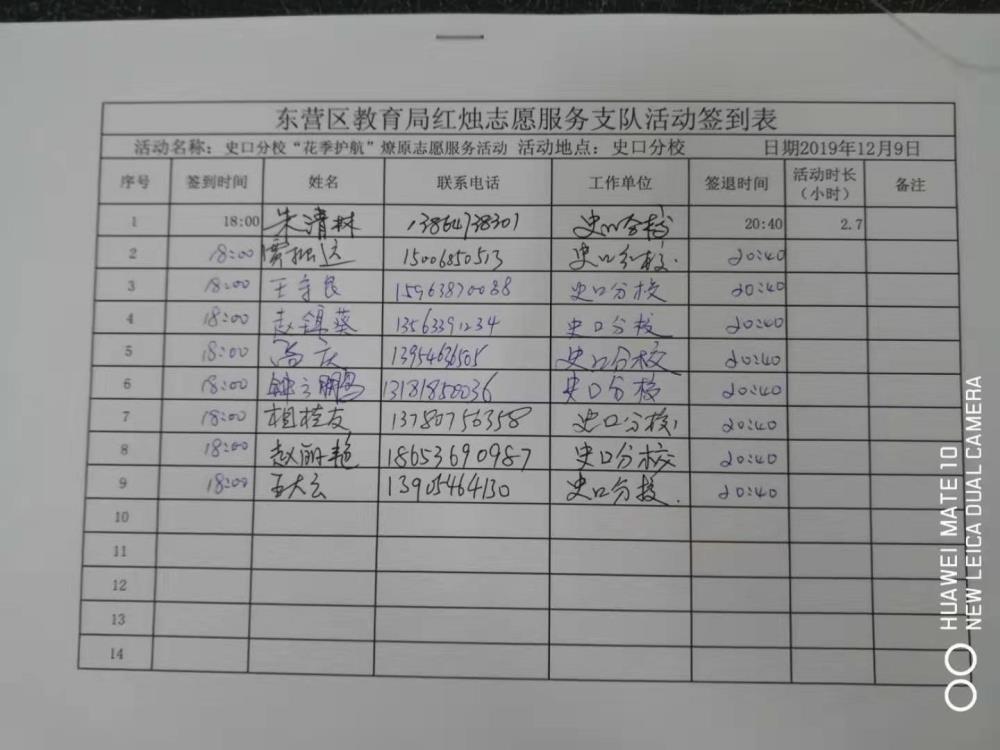 东营区教育局红烛志愿服务支队活动签到表
活动名称：史口分校“花季护航”燎原志愿服务活动 活动地点：史口分校 日期2019年12月9日
序号 签到时间 姓名 联系电话 工作单位 签退时间 活动时长（小时） 备注
1 18:00 朱清林 13864738301 史口分校 20:40 2.7
2 18:00 15006850513 史口分校. 20:40
3 18:00 王守良 15963870088 史口分校 20:40
4 18:00 赵锦葵 13563391234 史口分校 20:40
5 18:00 高庆 史口分校 20:40
6 18:00 13181850036 史口分校 20:40
7 18:00 相桂友 13780756358 史口分校 20:40
8 18:00 赵丽艳 18653690987 史口分校 20:40
9 18:00 王大云 13905464130 史口分校. 20:40
10
11
12
13
14
HUAWEI MATE 10
NEW LEICA DUAL CAMERA